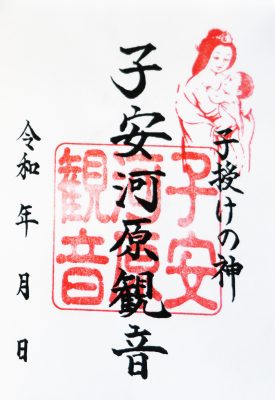 子授けの神
子安河原観音
令和 年 月 日
子安
河原
観音